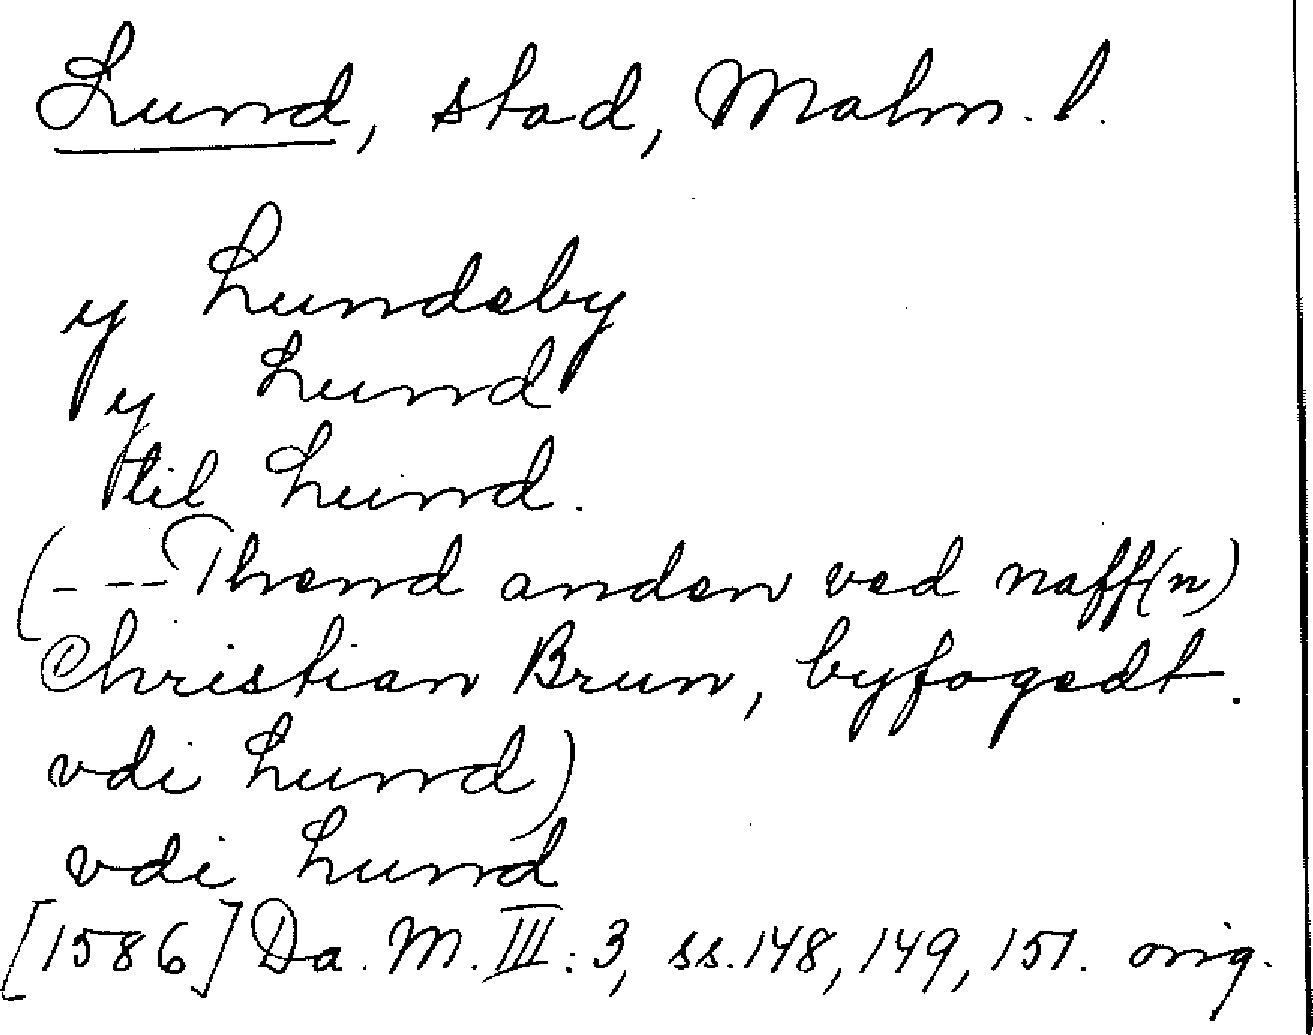 Lund, stad, Malm. l.
y Lundeby
y Lund
til Lund.
(- -- Thend anden ved naff(n)
Christian Brun, byfogedt.
vdi Lund)
vdi Lund
[1586] Da. M. III: 3, ss. 148, 149, 151. orig.